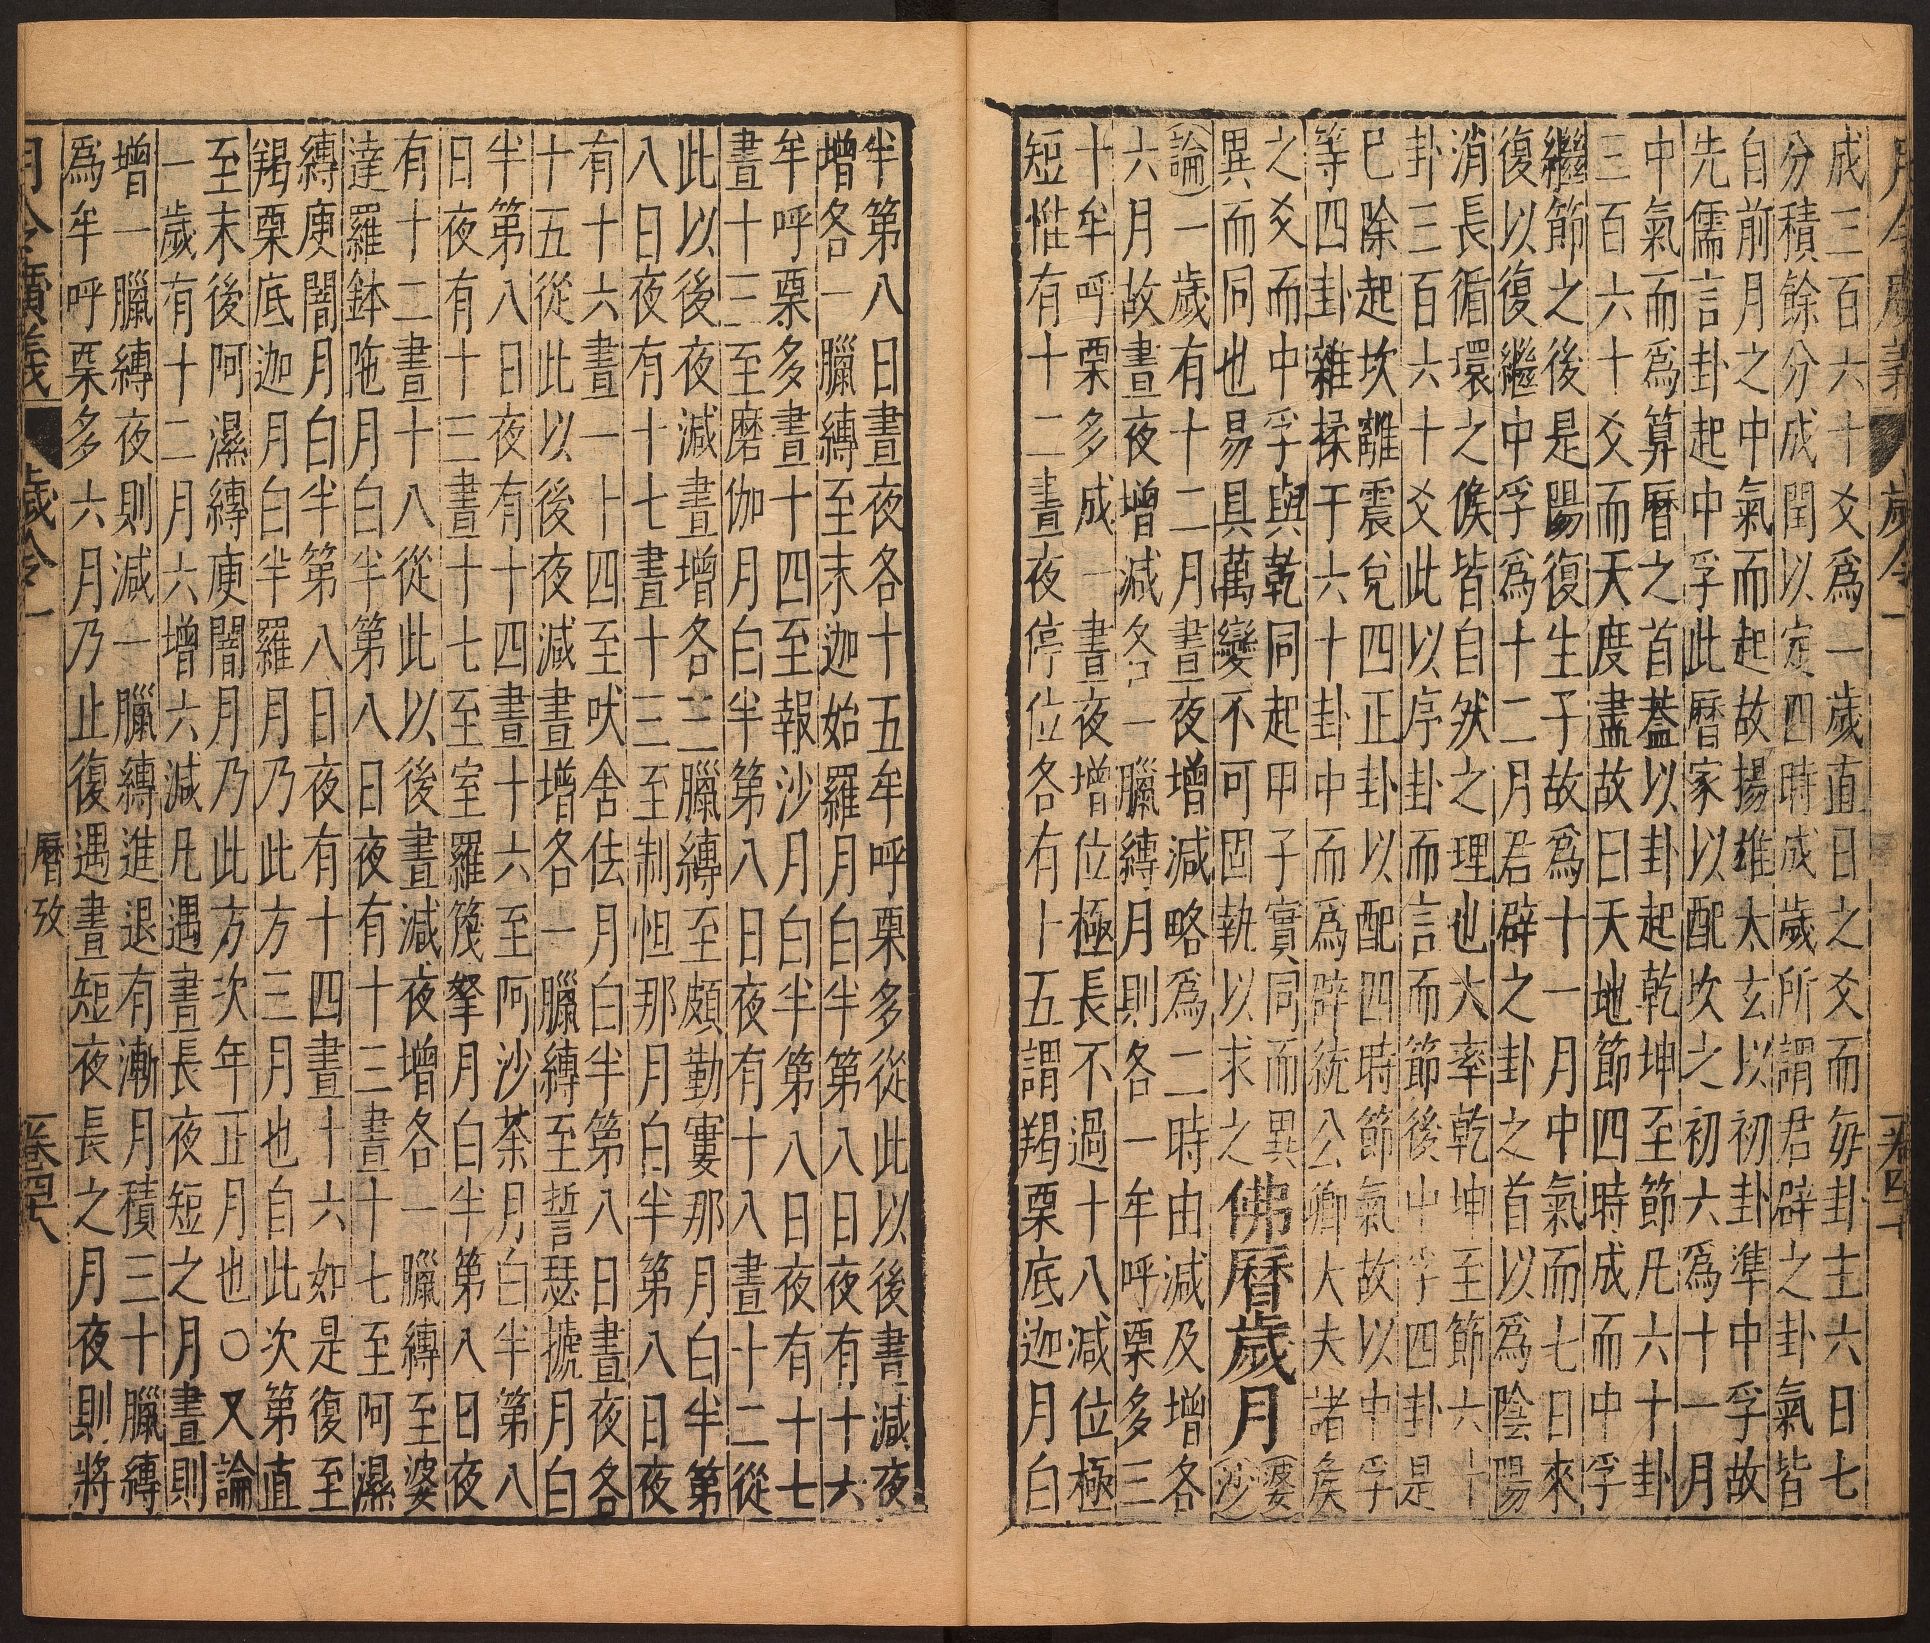 月令廣義 歲令一
成三百六十爻爲一歲直日之爻而每卦主六日七
分積餘分成閏以定四時成歲所謂君辟之卦氣皆
自前月之中氣而起故揚雄太玄以初卦準中孚故
先儒言卦起中孚此曆家以配坎之初六爲十一月
中氣而爲算曆之首葢以卦起乾坤至節凡六十卦
三百六十爻而天度盡故曰天地節四時成而中孚
繼節之後是陽復生子故爲十一月中氣而七日來
復以復繼中孚爲十二月君辟之卦之首以爲陰陽
消長循環之候皆自然之理也大率乾坤至節六十
卦三百六十爻此以序卦而言而節後中孚四卦是
巳除起坎離震兌四正卦以配四時節氣故以中孚
等四卦雜揉于六十卦中而爲辟統公卿大夫諸矦
之爻而中孚與乾同起甲子實同而異
異而同也易具萬變不可固執以求之
佛曆歲月
婆沙
論一歲有十二月晝夜增減略爲二時由減及增各
六月故晝夜增減各一臘縛月則各一牟呼栗多三
十牟呼栗多成一晝夜增位極長不過十八減位極
短惟有十二晝夜停位各有十五謂羯栗底迦月白
半第八日晝夜各十五牟呼栗多從此以後晝減夜
增各一臘縛至末迦始羅月白半第八日夜有十六
牟呼栗多晝十四至報沙月白半第八日夜有十七
晝十三至磨伽月白半第八日夜有十八晝十二從
此以後夜減晝增各一臘縛至頗勤窶那月白半第
八日夜有十七晝十三至制怛那月白半第八日夜
有十六晝一十四至吠舍佉月白半第八日晝夜各
十五從此以後夜減晝增各一臘縛至誓瑟搋月白
半第八日夜有十四晝十六至阿沙荼月白半第八
日夜有十三晝十七至室羅筏拏月白半第八日夜
有十二晝十八從此以後晝減夜增各一臘縛至婆
達羅鉢陁月白半第八日夜有十三晝十七至阿濕
縛庾闍月白半第八日夜有十四晝十六如是復至
羯栗底迦月白半羅月乃此方三月也自此次第直
至末後阿濕縛庾闍月乃此方次年正月也○又論
一歲有十二月六增六減凡遇晝長夜短之月晝則
增一臘縛夜則減一臘縛進退有漸月積三十臘縛
爲牟呼栗多六月乃止復遇晝短夜長之月夜則將
月令廣義 歲令一 曆攷 卷四十八